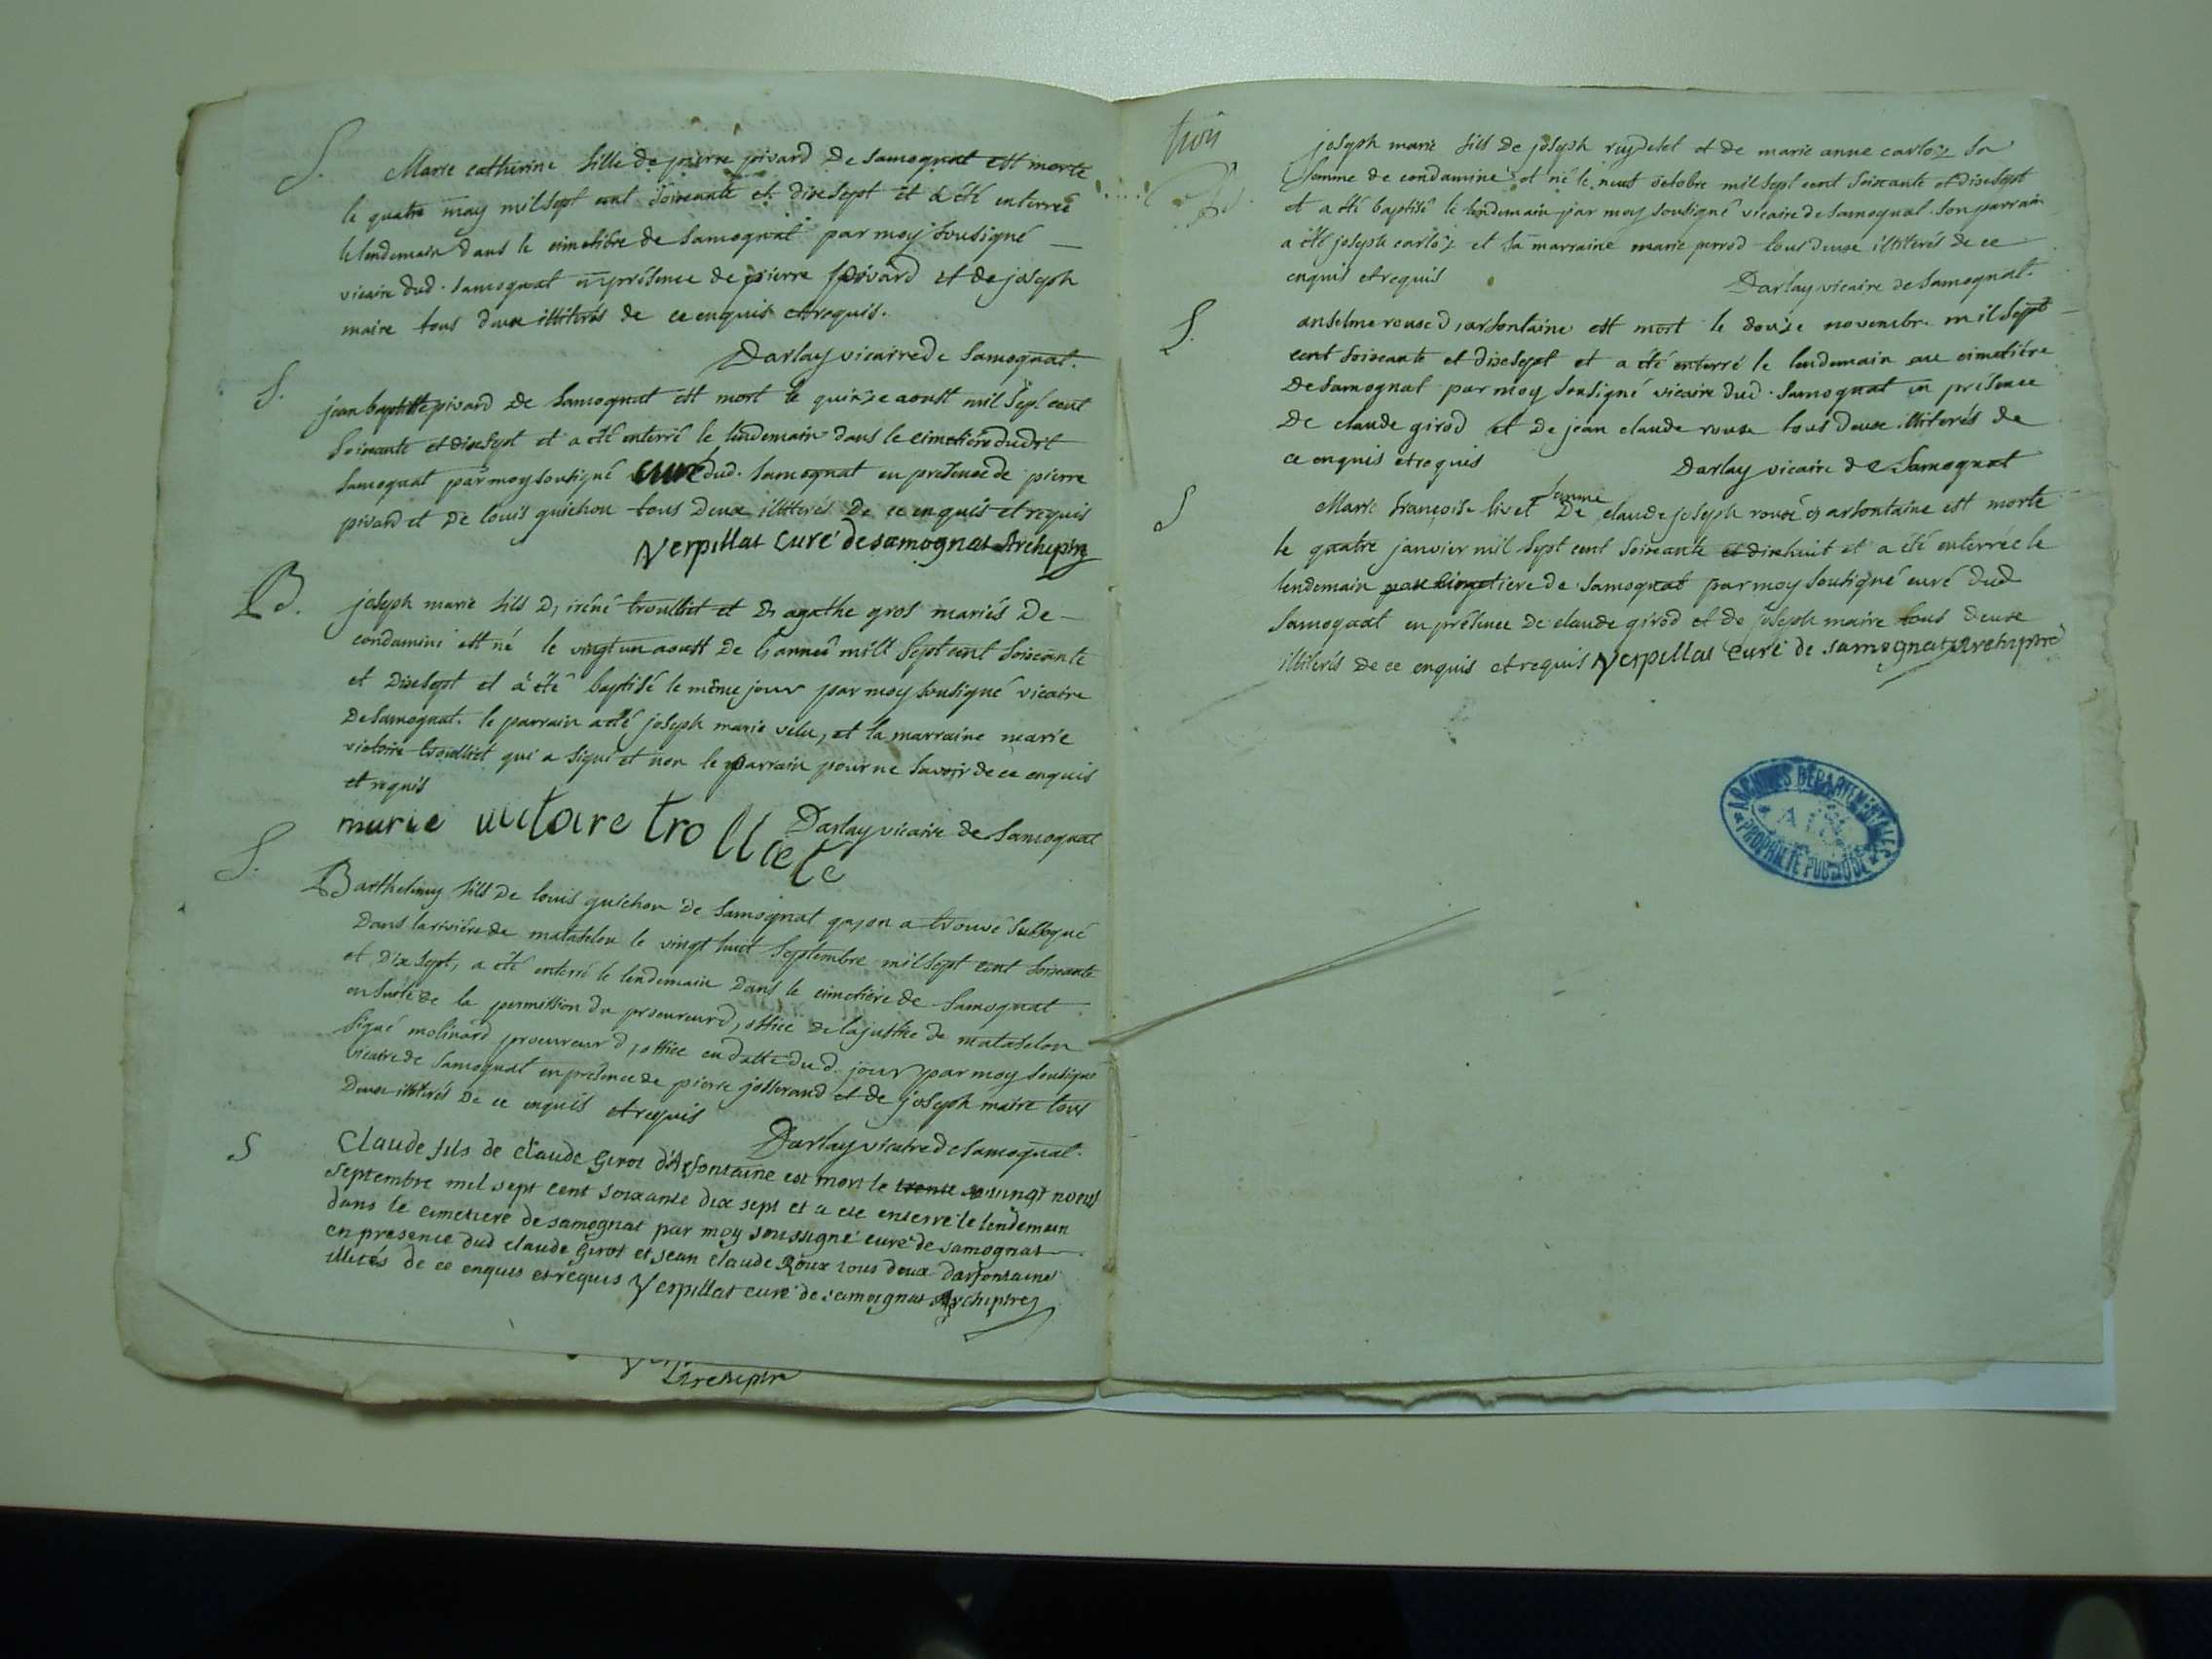 S. Marie catherine fille de pierre pivard De Samognat est morte
le quatre may mil sept cent soixante et dixsept et a été enterreé
le lendemain dans le cimetière de Samognat par moy sousigné
vicaire dud. Samognat en présence de pierre pivard et de joseph
maire tous deux illiterés de ce enquis et requis.
Darlay vicaire de Samognat.
S. jean baptiste pivard De Samognat est mort le quinze aoust mil sept cent
soixante et dixsept et a été enterré le lendemain dans le cimetière dudit
Samognat par moy sousigné curé dud. Samognat en presence de pierre
pivard et De louis guichon tous Deux illiterés De ce enquis et requis
Verpillat Curé de samognat Archiptre
B. joseph marie fils D, iréné troulliet et D, agathe gros mariés De
condamine est né le vingt un aoust De L, anneé mill sept cent soixante
et Dixsept et a été baptisé le même jour par moy sousigné vicaire
De Samognat. le parrain a été joseph marie velu, et la marraine marie
victoire troulliet qui a signé et non le parrain pour ne savoir de ce enquis
et requis
marie victoire trolliete
Darlay vicaire de Samognat
S. Barthelemy fils De louis guichon de Samognat qu,on a trouvé suffoqué
Dans la rivière de matafelon le vingt huit septembre mil sept cent soixante
et Dix sept, a été enterré le lendemain Dans le cimetière de Samognat
en suite de la permission du procureur d, office de la justice de matafelon
signé molinard procureur d, office en datte dud. jour par moy sousigné
vicaire de Samognat en présence de pierre josserand et de joseph maire tous
Deux illiterés De ce enquis et requis
Darlay vicaire de Samognat.
S Claude fils de Claude Girot d'Arfontaine est mort le trente vingt neuf
septembre mil sept cent soixante dix sept et a ete enterré le lendemain
dans le cimetiere de samognat par moy soussigné curé de samognat
en presence dud claude Girot et jean claude Roux tous deux darfontaine
illités de ce enquis et requis Verpillat curé de samognat Archiptre
Archiptr
joseph marie fils de joseph reydelet et de marie anne carloz sa
femme de condamine et né le neuf octobre mil sept cent soixante et dixsept
et a été baptisé le lendemain par moy sousigné vicaire de Samognat. Son parrain
a été joseph carloz et sa marraine marie perrod tous deux illiterés de ce
enquis et requis
Darlay vicaire de Samognat.
S. anselme roux d, arfontaine est mort le douze novembre mil sept
cent soixante et dixsept et a été enterré le lendemain au cimetière
De Samognat par moy sousigné vicaire dud. Samognat en présence
De claude girod et De jean claude roux tous deux illiterés de
ce enquis et requis
Darlay vicaire de Samognat
S Marie françoise livet femme De claude joseph roux d, arfontaine est morte
le quatre janvier mil sept cent soixante et dixhuit et a été enterrée le
lendemain au cimetiere de Samognat par moy sousigné curé dud
Samognat en présence De claude girod et de joseph maire tous deux
illiterés de ce enquis et requis Verpillat Curé de samognat Archiptre
ARCHIVES DÉPARTEMENTALES
PROPRIÉTÉ PUBLIQUE